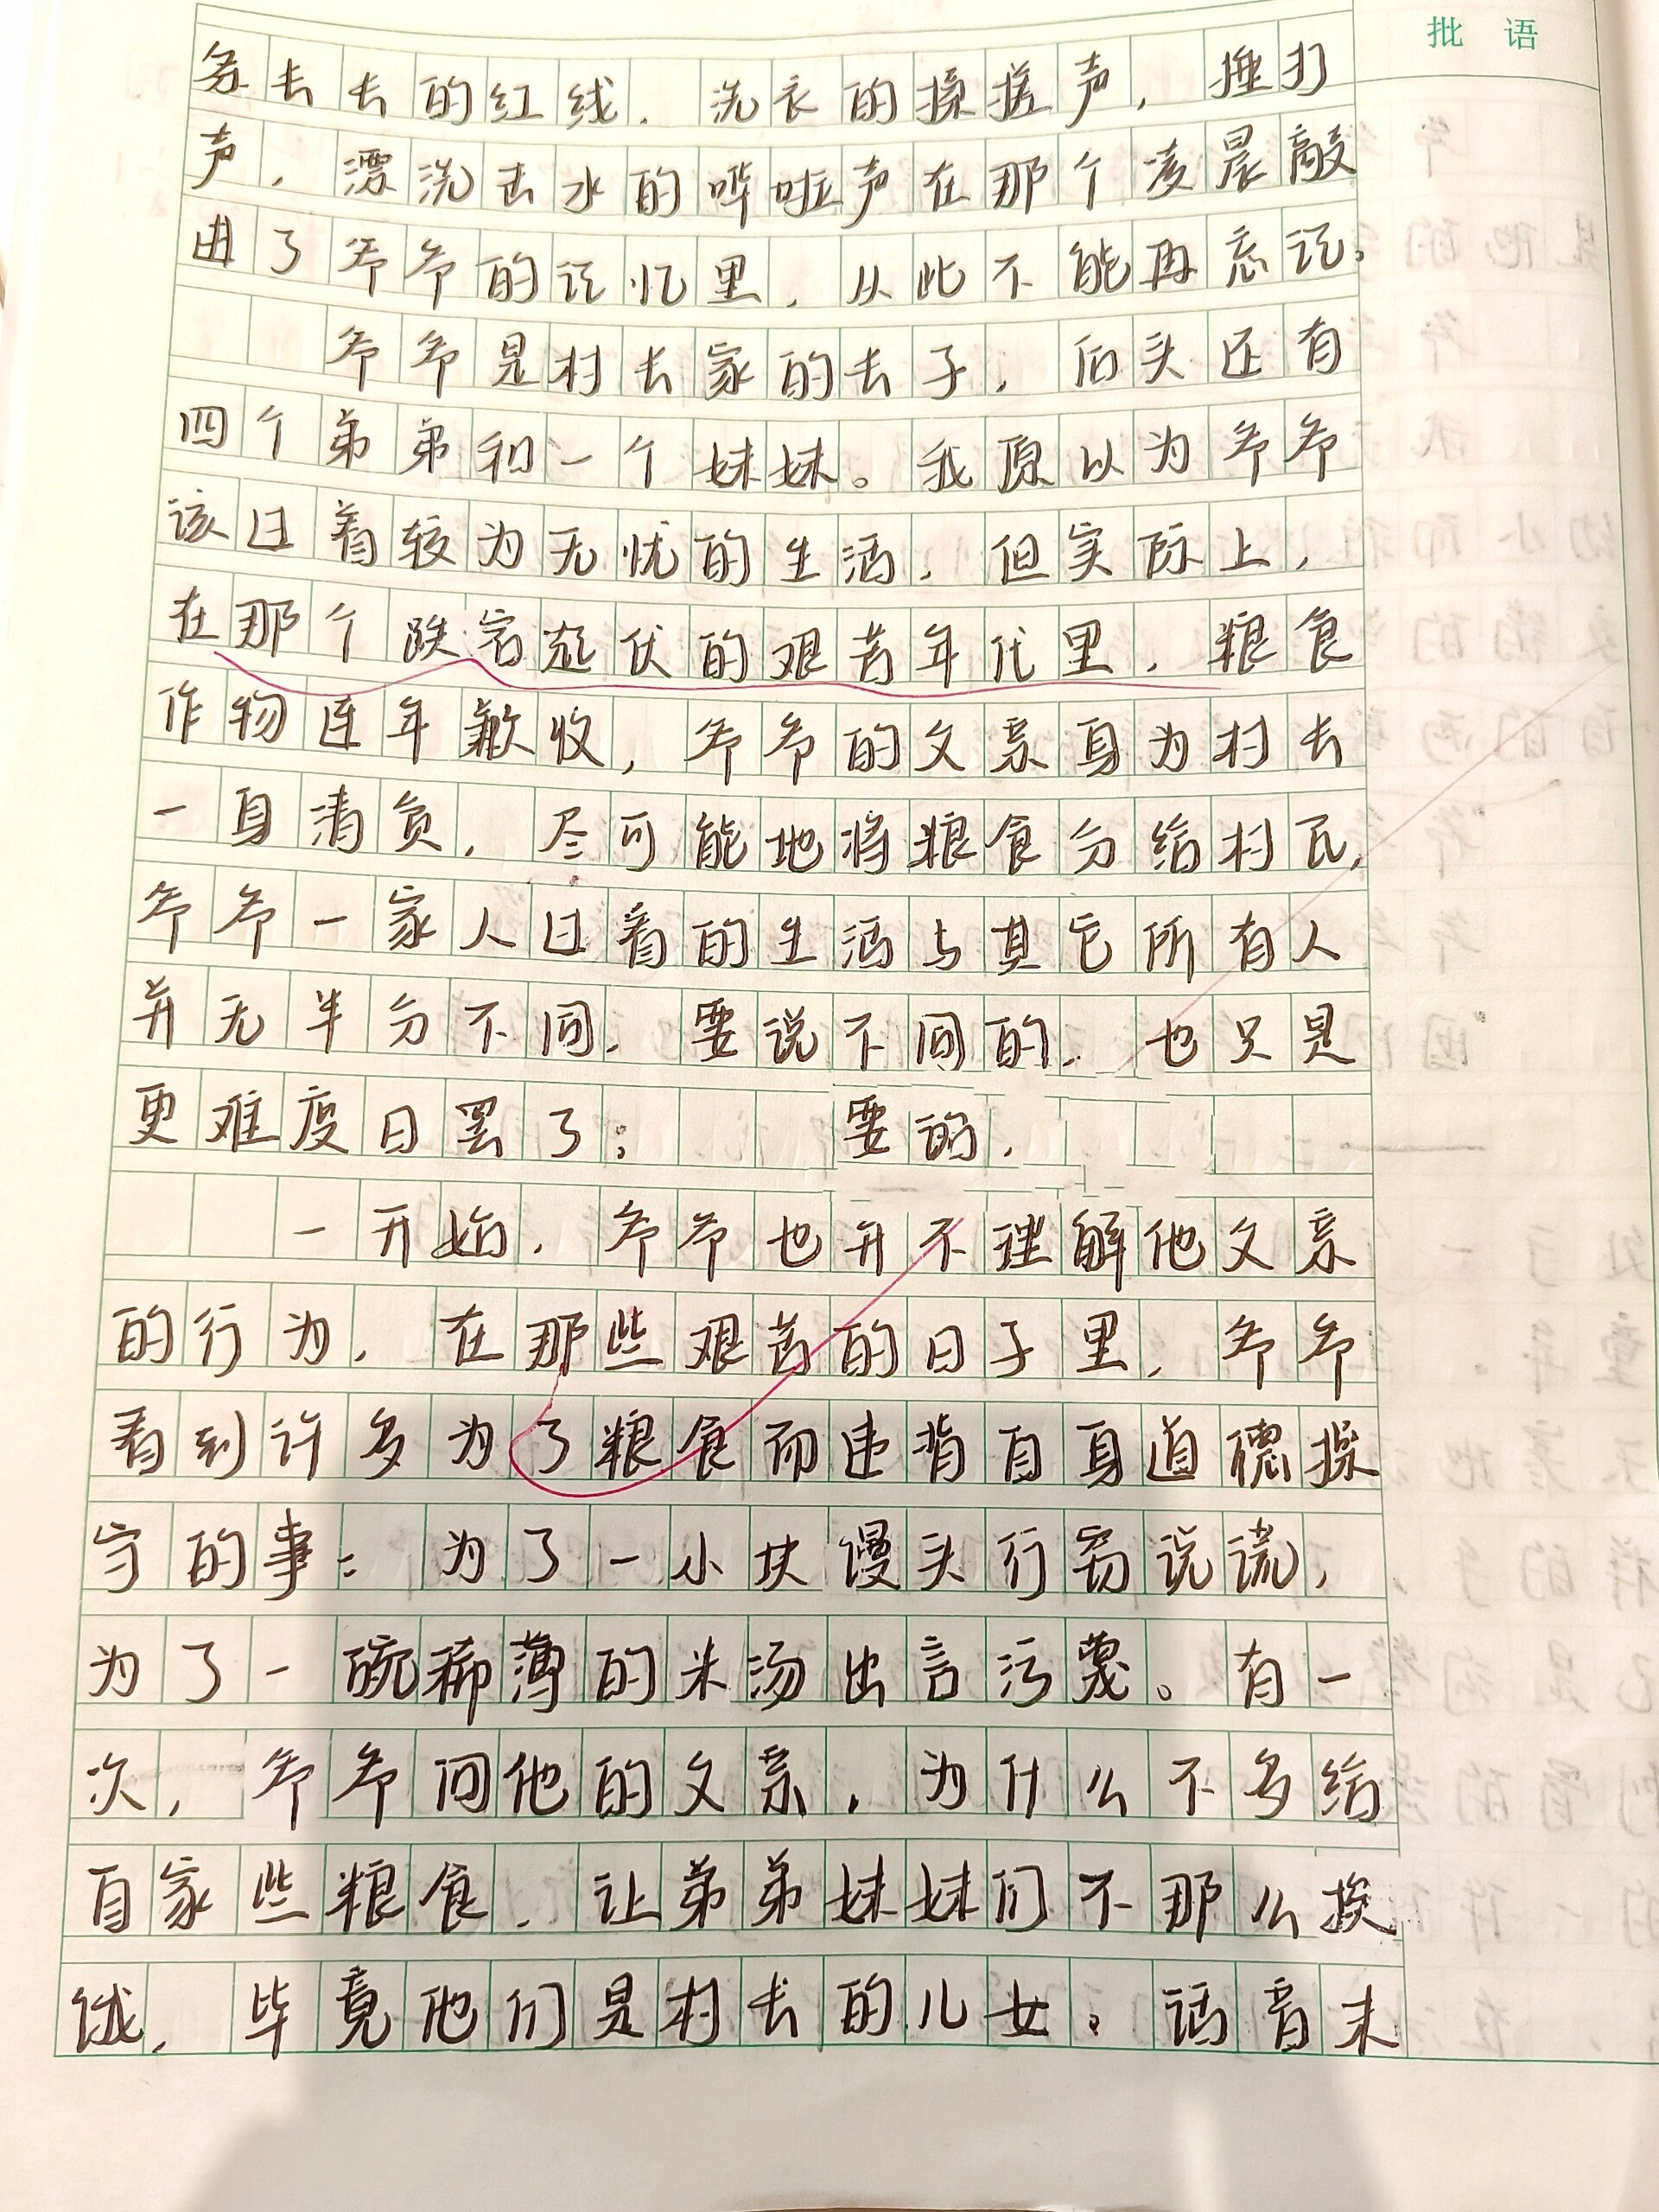 批 语
务长长的红线，洗衣的揉搓声，捶打
声，漂洗去水的哗啦声在那个凌晨敲
进了爷爷的记忆里，从此不能再忘记。
爷爷是村长家的长子，后头还有
四个弟弟和一个妹妹。我原以为爷爷
该过着较为无忧的生活，但实际上，
在那个跌宕起伏的艰苦年代里，粮食
作物连年歉收，爷爷的父亲身为村长
一身清贫，尽可能地将粮食分给村民，
爷爷一家人过着的生活与其它所有人
并无半分不同，要说不同的，也只是
更难度日罢了； 要的，
一开始，爷爷也并不理解他父亲
的行为，在那些艰苦的日子里，爷爷
看到许多为了粮食而违背自身道德操
守的事：为了一小块馒头行窃说谎，
为了一碗稀薄的米汤出言污蔑。有一
次，爷爷问他的父亲，为什么不多给
自家些粮食，让弟弟妹妹们不那么挨
饿，毕竟他们是村长的儿女。话音未